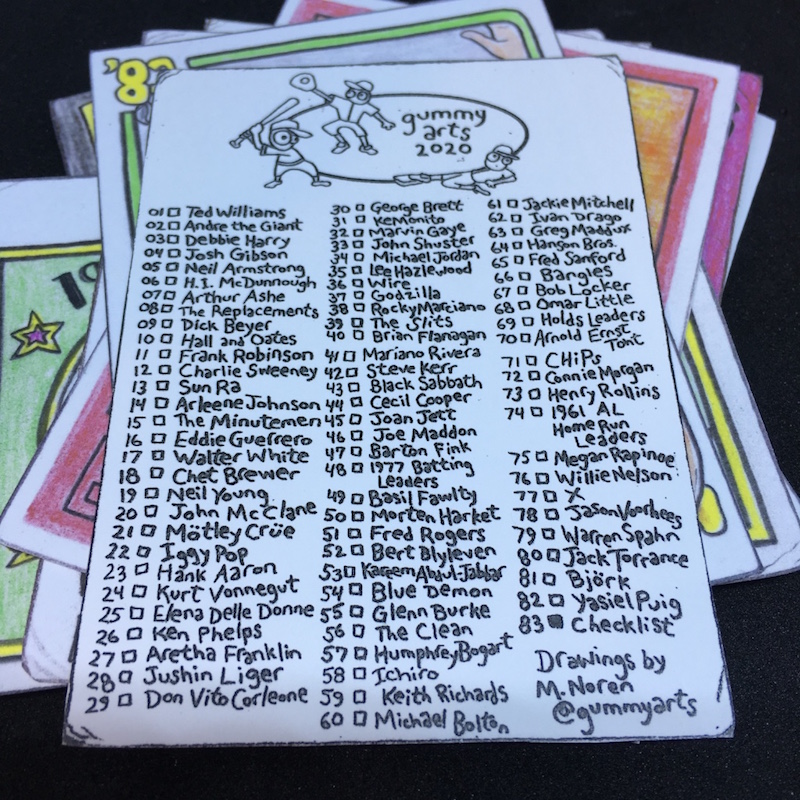 '82
19
gummy
arts
2020
01 Ted Williams
02 Andre the Giant
03 Debbie Harry
04 Josh Gibson
05 Neil Armstrong
06 H.I. McDunnough
07 Arthur Ashe
08 The Replacements
09 Dick Beyer
10 Hall and Oates
11 Frank Robinson
12 Charlie Sweeney
13 Sun Ra
14 Arleene Johnson
15 The Minutemen
16 Eddie Guerrero
17 Walter White
18 Chet Brewer
19 Neil Young
20 John McClane
21 Mötley Crüe
22 Iggy Pop
23 Hank Aaron
24 Kurt Vonnegut
25 Elena Delle Donne
26 Ken Phelps
27 Aretha Franklin
28 Jushin Liger
29 Don Vito Corleone
30 George Brett
31 KeMonito
32 Marvin Gaye
33 John Shuster
34 Michael Jordan
35 Lee Hazlewood
36 Wire
37 Godzilla
38 Rocky Marciano
39 The Slits
40 Brian Flanagan
41 Mariano Rivera
42 Steve Kerr
43 Black Sabbath
44 Cecil Cooper
45 Joan Jett
46 Joe Maddon
47 Barton Fink
48 1977 Batting
Leaders
49 Basil Fawlty
50 Morten Harket
51 Fred Rogers
52 Bert Blyleven
53 Kareem Abdul-Jabbar
54 Blue Demon
55 Glenn Burke
56 The Clean
57 Humphrey Bogart
58 Ichiro
59 Keith Richards
60 Michael Bolton
61 Jackie Mitchell
62 Ivan Drago
63 Greg Maddux
64 Hanson Bros.
65 Fred Sanford
66 Bangles
67 Bob Locker
68 Omar Little
69 Holds Leaders
70 Arnold Ernst
Toht
71 CHiPs
72 Connie Morgan
73 Henry Rollins
74 1961 AL
Home Run
Leaders
75 Megan Rapinoe
76 Willie Nelson
77 X
78 Jason Voorhees
79 Warren Spahn
80 Jack Torrance
81 Björk
82 Yasiel Puig
83 Checklist
Drawings by
M. Noren
@gummyarts